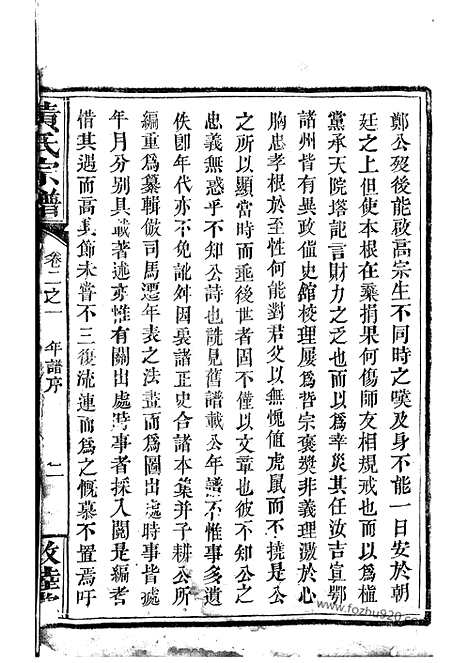 鄭公歿後能啟高宗生不同時之嘆及身不能一日安於朝
廷之上但使本根在棄捐果何傷師友相規戒也而以爲植
黨承天院塔記言財力之乏也而以爲幸災其任汝吉宣鄂
諸州皆有異政傕史館校理屢爲哲宗褒奬非義理激於心
胸忠孝根於至性何能對君父以無愧值虎鼠而不撓是公
之所以顯當時而垂後世者固不僅以文章也彼不知公之
忠義無惑乎不知公詩也説見舊譜載公年譜不惟事多遺
佚卽年代亦不免訛舛因裒諸正史合諸本集并子耕公所
編重爲纂輯倣司馬遷年表之法畫而爲圖出處時事皆遞
年月分别具載著述亦惟有關出處時事者採入閲是編者
借其遇而高其節未嘗不三復流連而爲之慨慕不置焉吁
黃氏宗譜
卷二之一
年譜序
二
敦睦堂
www.fozhu920.com